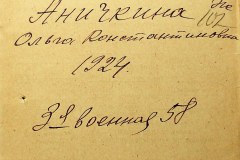 Аничкина
Ольга Константиновна
1924.
3я военная 58